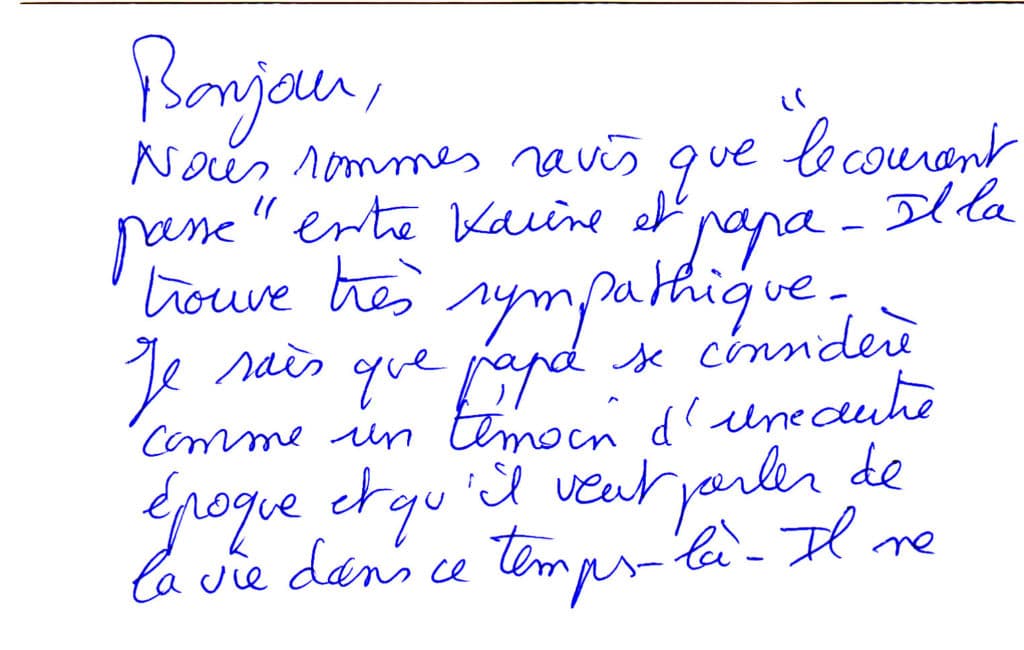 Bonjour,
Nous sommes ravis que "le courant
passe" entre Karine et papa - Il la
trouve très sympathique -
Je sais que papa se considère
comme un témoin d'une autre
époque et qu'il veut parler de
la vie dans ce temps-là - Il ne